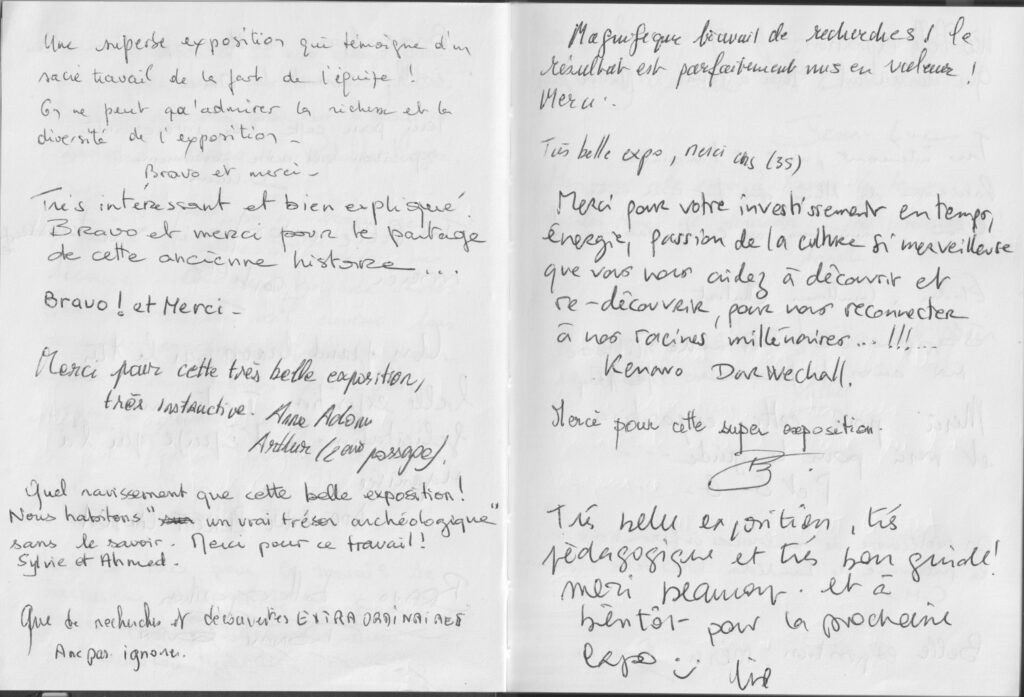 Une superbe exposition qui témoigne d'un
sacré travail de la part de l'équipe !
On ne peut qu'admirer la richesse et la
diversité de l'exposition –
Bravo et merci –
Très intéressant et bien expliqué.
Bravo et merci pour le partage
de cette ancienne histoire...
Bravo ! et Merci –
Merci pour cette très belle exposition,
très instructive. Anne Adam
Arthur (2ème passage).
Quel ravissement que cette belle exposition !
Nous habitons " un vrai trésor archéologique"
sans le savoir. Merci pour ce travail !
Sylvie et Ahmed.
Que de recherches et découvertes EXTRAORDINAIRES
A ne pas ignorer.
Magnifique travail de recherches ! le
résultat est parfaitement mis en valeur !
Merci.
Très belle expo, merci (35)
Merci pour votre investissement en temps,
énergie, passion de la culture si merveilleuse
que vous nous aidez à découvrir et
re-découvrir, pour nous reconnecter
à nos racines millénaires...!!!...
Kenavo Darwechall.
Merci pour cette super exposition.
B
Très belle exposition, très
pédagogique et très bon guide!
merci beaucoup. et à
bientôt pour la prochaine
expo :)